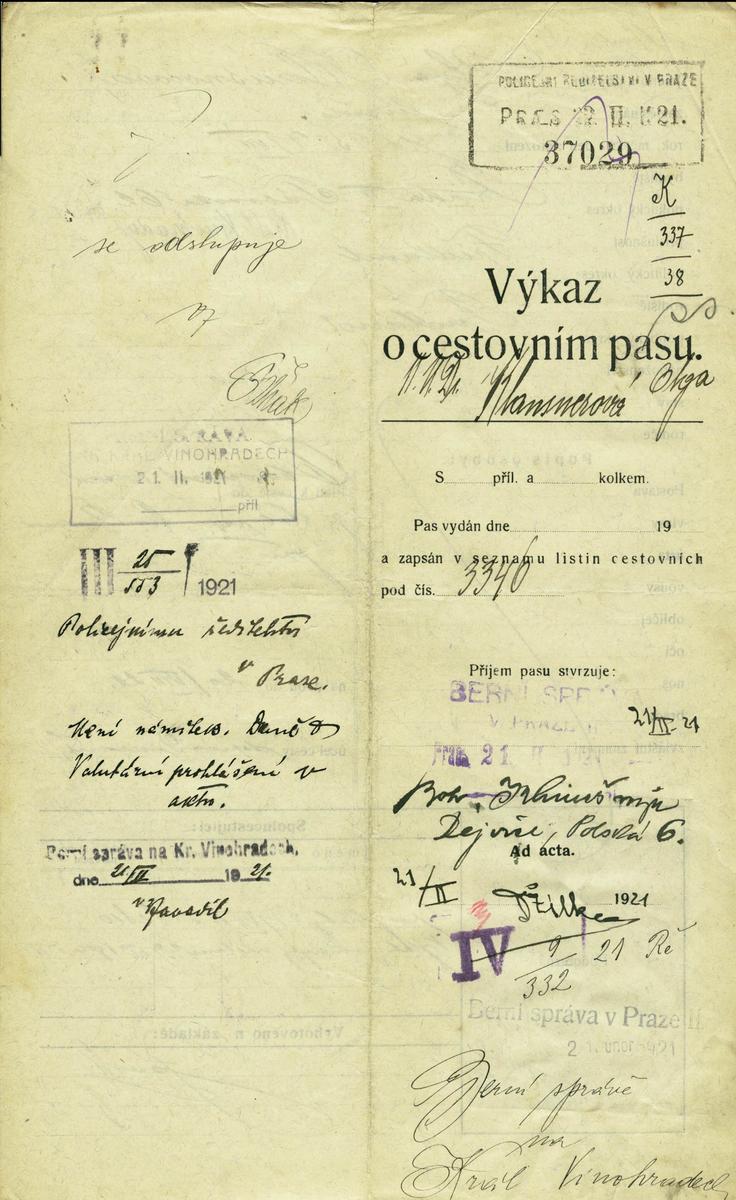 se odstupuje
SPRÁVA
VINOHRADECH
21. II. 1921
příl
III 25 1921
553
Policejnímu ředitelství
v Praze.
Není námitek. Daně a
Valutární prohlášení v
aktu.
Berní správa na Kr. Vinohradech,
dne 21/II 1921.
POLICEJNÍ ŘEDITELSTVÍ V PRAZE
PRÆS 22 II. 1921.
37029
K
337
38
Výkaz
o cestovním pasu.
Klausnerová Olga
S příl. a kolkem.
Pas vydán dne 19
a zapsán v seznamu listin cestovních
pod čís. 3346
Příjem pasu stvrzuje:
BERNÍ SPRÁVA
V PRAZE
21 II
21/II 21
Dejvice, Polská 6.
Ad acta.
21/II 1921
IV 9 21
332
Berní správa v Praze II
2 1. únor 1921
Berní správě
na
Král Vinohradech